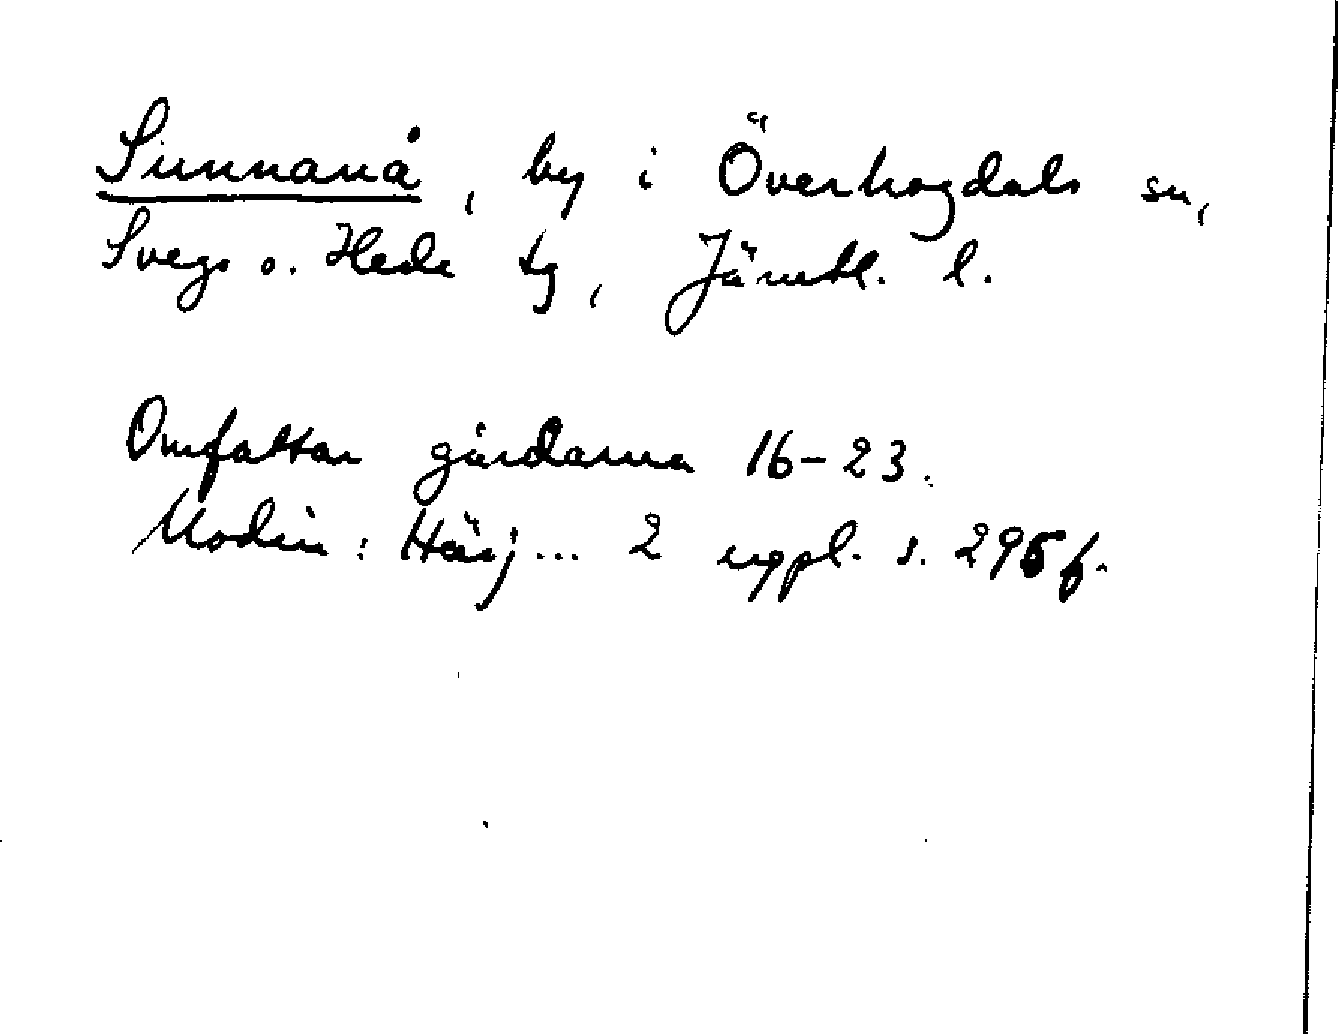 Sunnanå, by i Överhogdals sn,
Svegs o. Hede tg, Jämtl. l.
Omfattar gårdarna 16-23.
Modin: Härj... 2 uppl. s. 295 f.